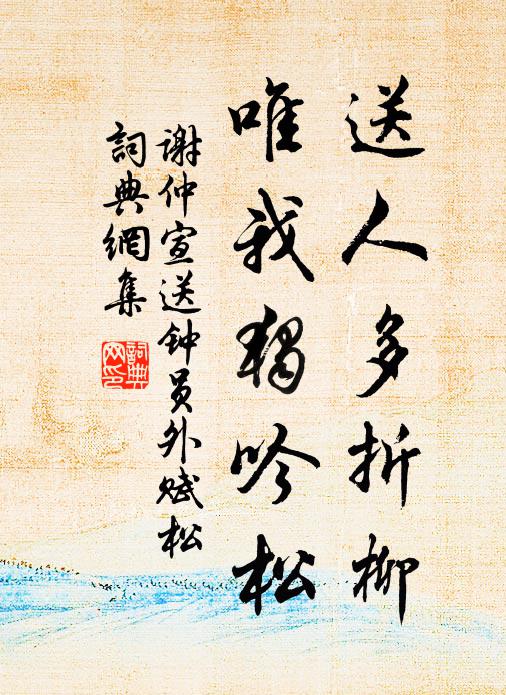 送人多折柳
唯我独吟松
谢仲宣送钟员外赋松
詞典網集
詞典
网印